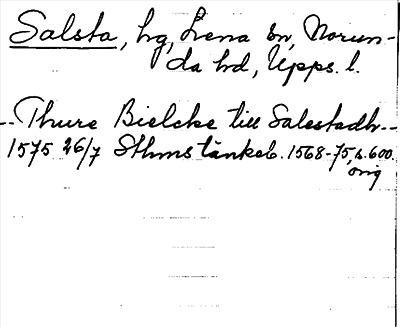 Salsta, hg, Lena sn, Norun-
da hd, Upps. l.
-- Thure Bielcke till Salestadh --
1575 26/7 Sthms tänkeb. 1568-75, s. 600.
orig